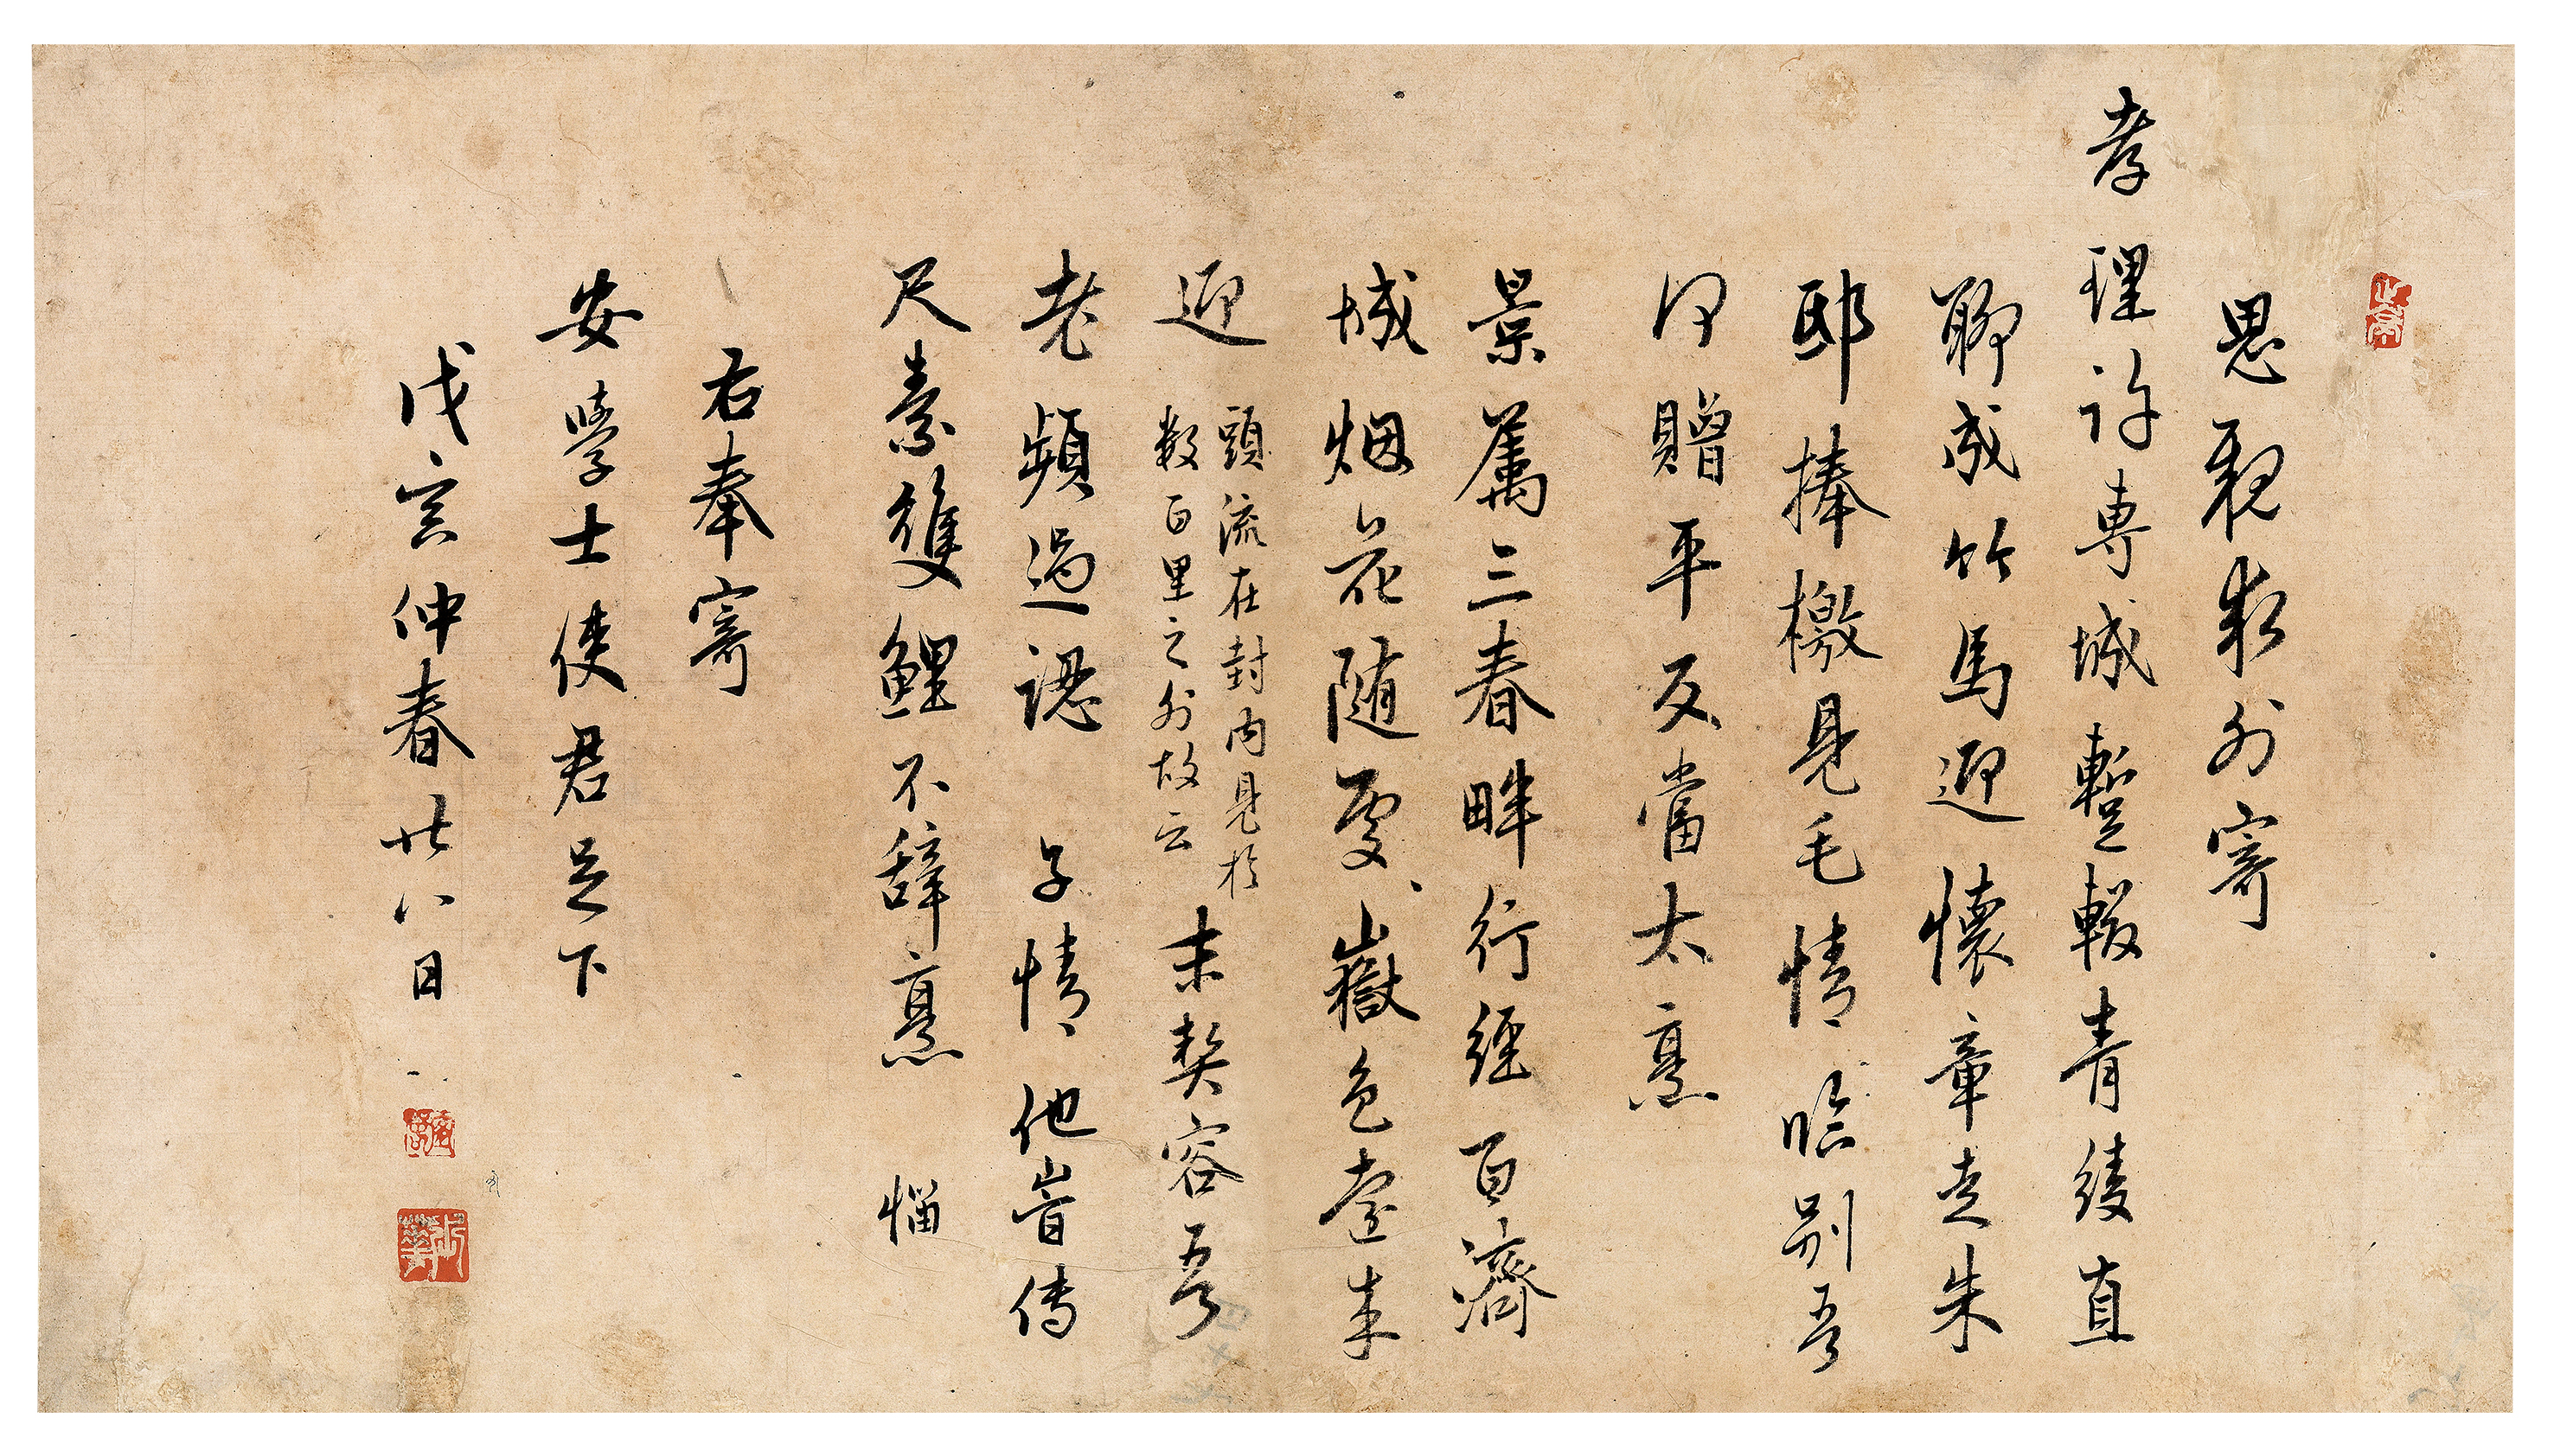 思親求外寄
孝理許專城暫輟青綾直
聊成竹馬迎懷章走朱
邸捧檄見毛情臨別吾
何贈平反當太烹
景屬三春畔行經百濟
城烟花随處嶽色遠来
迎 頭流在封内見於
數百里之外故云
末契容吾
老頻過認子情他峕傳
尺素雙鯉不辞烹 惱
右奉寄
安學士使君足下
戊寅仲春廿八日